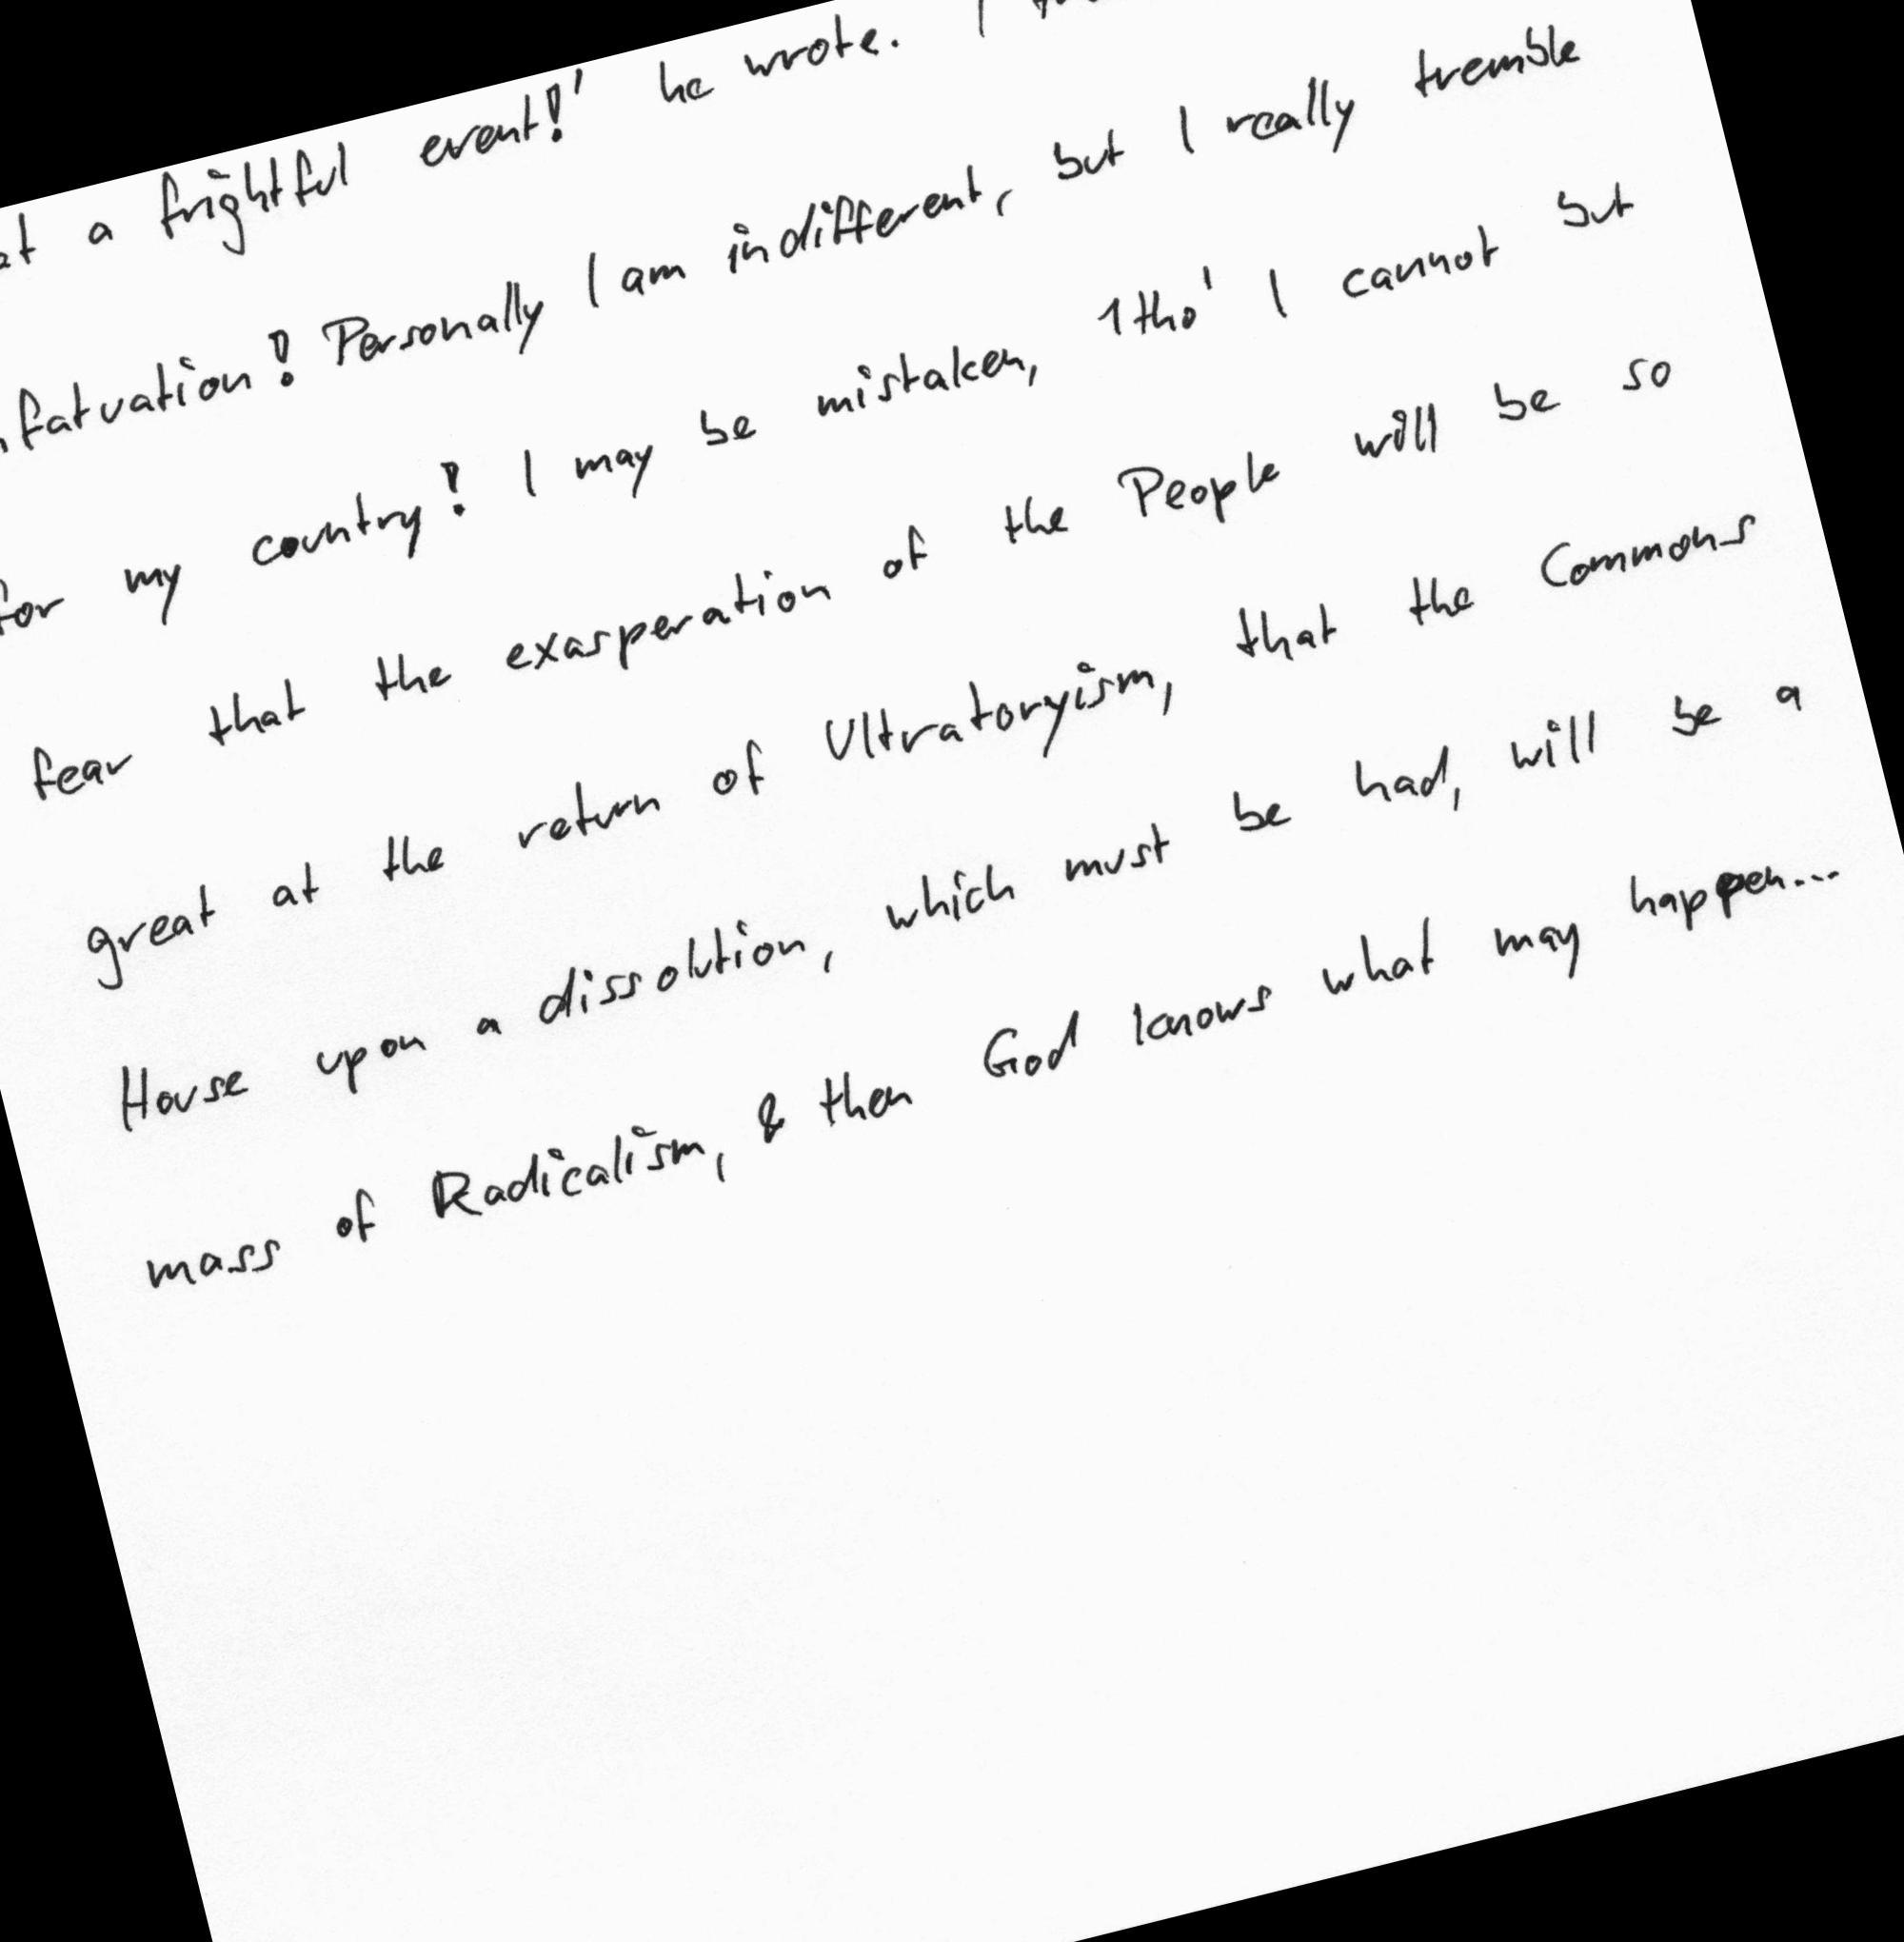 a frightful event!' he wrote.
Personally I am indifferent, but I really tremble
for my country! I may be mistaken, 1tho' I cannot but
fear that the exasperation of the People will be so
great at the return of Ultratoryism, that the Commons
House upon a dissolution, which must be had, will be a
mass of Radicalism, & then God knows what may happen...